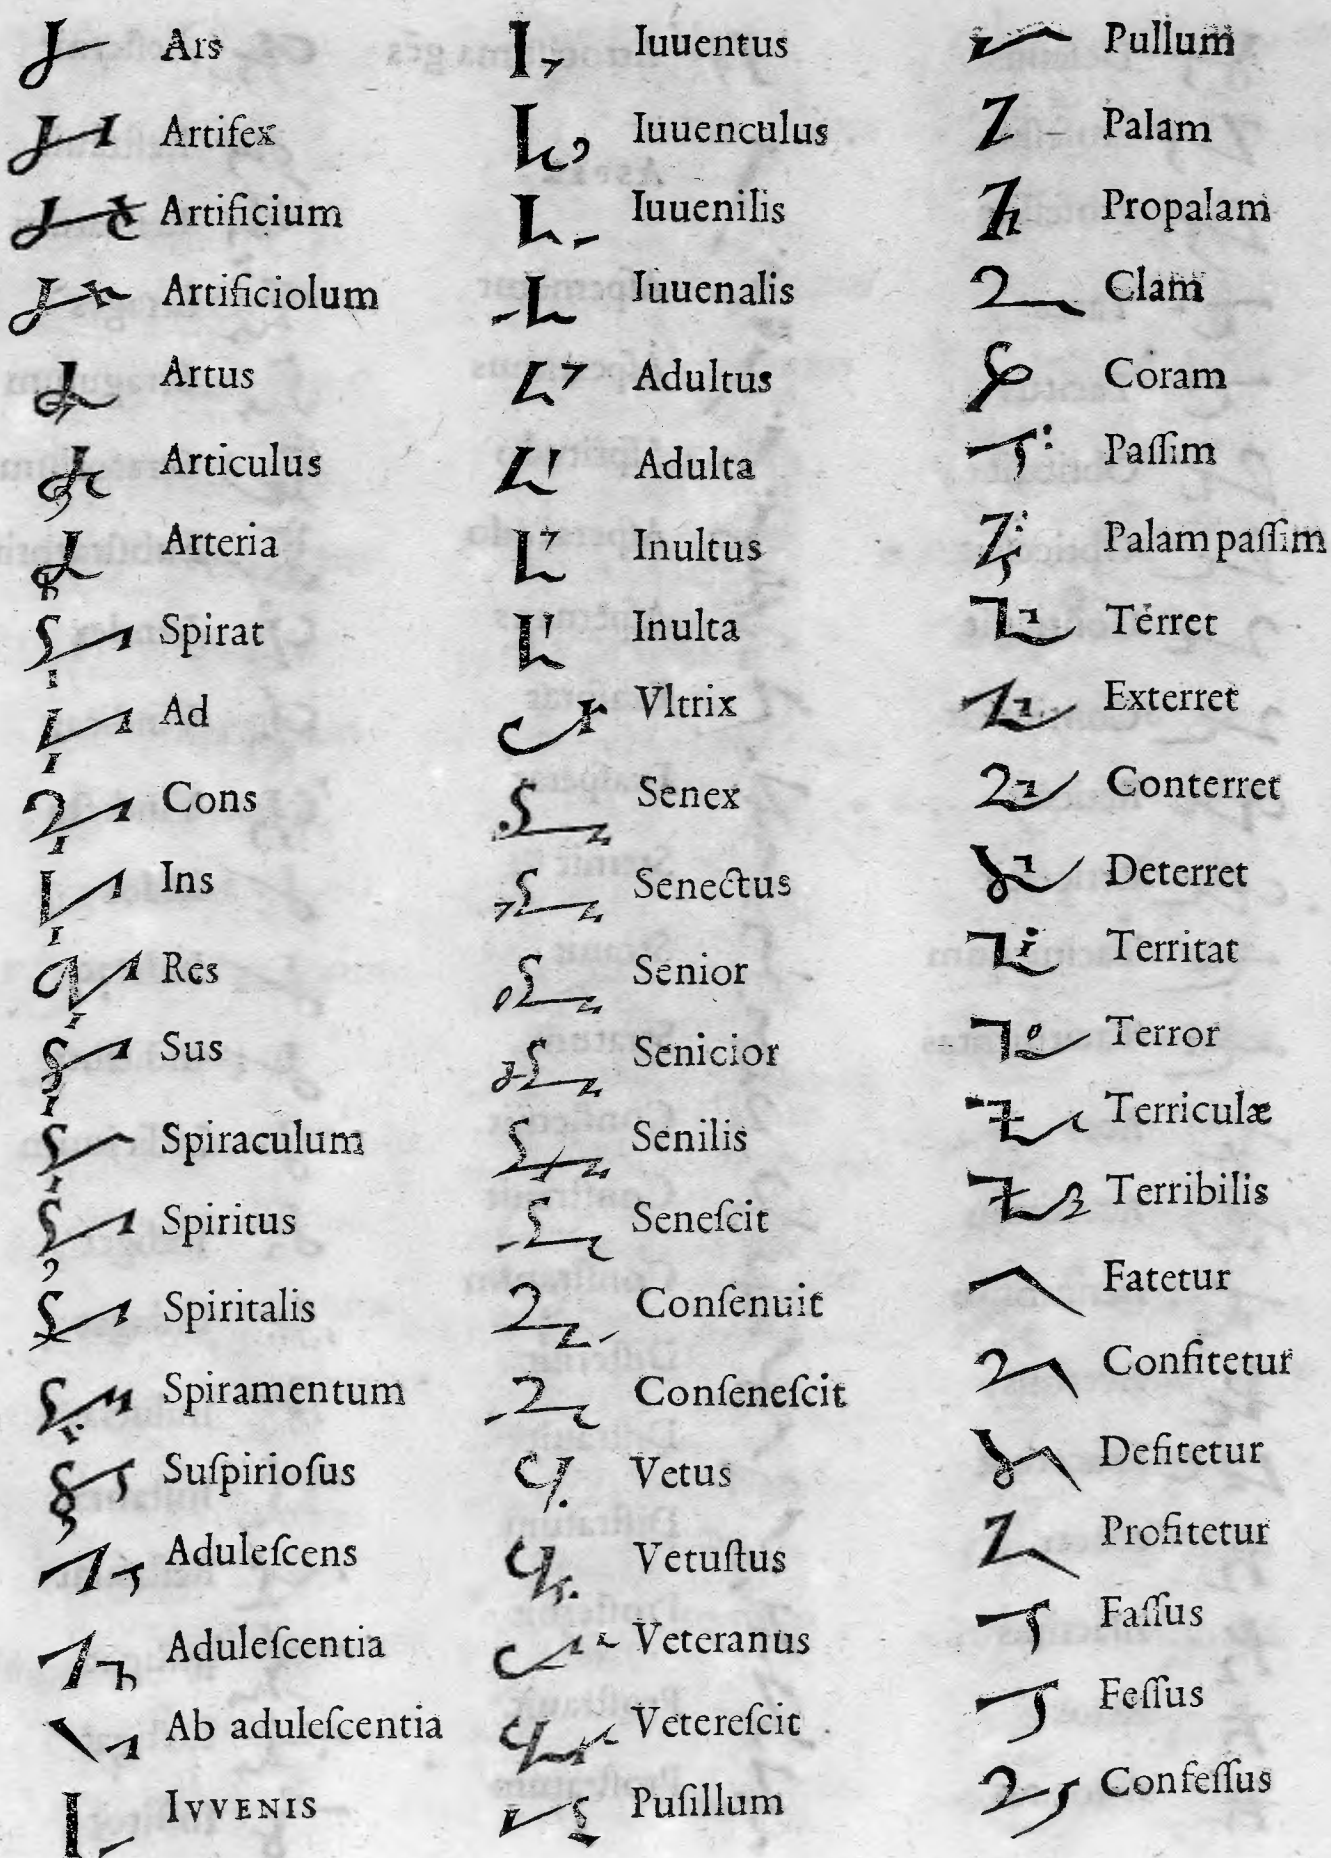 Ars
Artifex
Artificium
Artificiolum
Artus
Articulus
Arteria
Spirat
Ad
Cons
Ins
Res
Sus
Spiraculum
Spiritus
Spiritalis
Spiramentum
Suſpirioſus
Aduleſcens
Aduleſcentia
Ab aduleſcentia
IVVENIS
Iuuentus
Iuuenculus
Iuuenilis
Iuuenalis
Adultus
Adulta
Inultus
Inulta
Vltrix
Senex
Senectus
Senior
Senicior
Senilis
Seneſcit
Conſenuit
Conſeneſcit
Vetus
Vetuſtus
Veteranus
Vetereſcit
Puſillum
Pullum
Palam
Propalam
Clam
Coram
Paſſim
Palam paſſim
Terret
Exterret
Conterret
Deterret
Territat
Terror
Terriculæ
Terribilis
Fatetur
Confitetur
Defitetur
Profitetur
Faſſus
Feſſus
Confeſſus